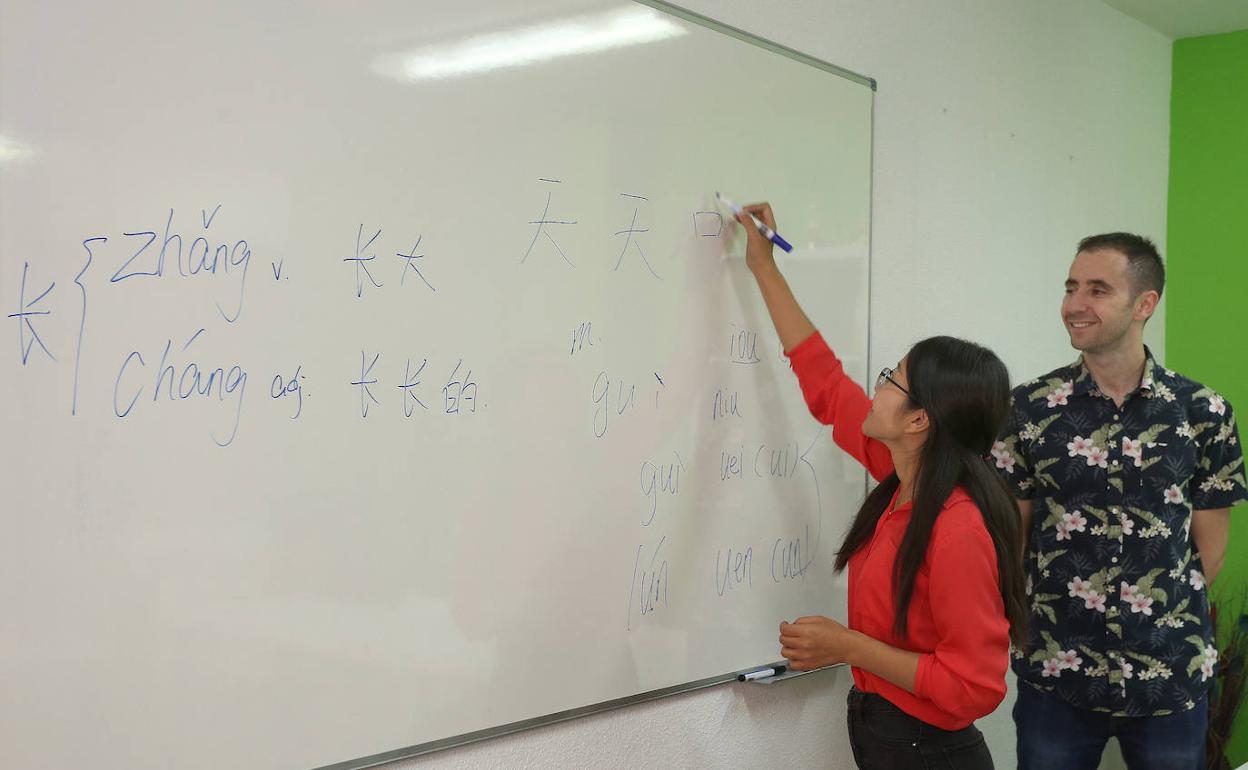 长 { zhǎng v. 长大
cháng adj. 长长的.
天天口
m. iou
guì niu
guì uei (ui)
lún uen (un)